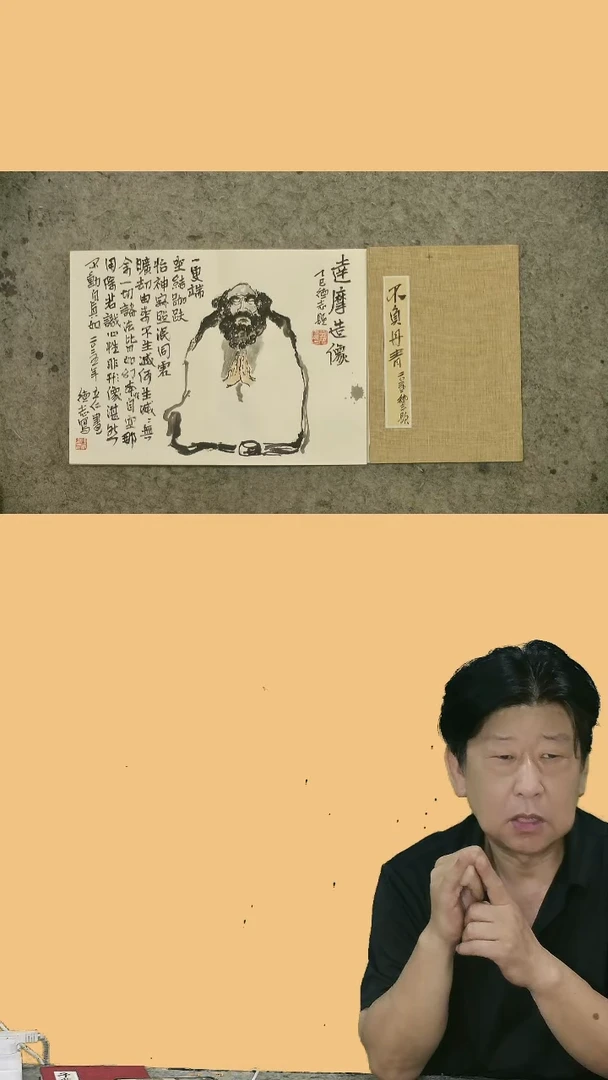 不負丹青
達摩造像
一更端
坐結跏趺
怡神寂照泯同虛
曠劫由來不生滅何生滅〻無
余一切諸法皆如幻本自空那
用除若識心性非形像湛然
不動自真如
德志寫